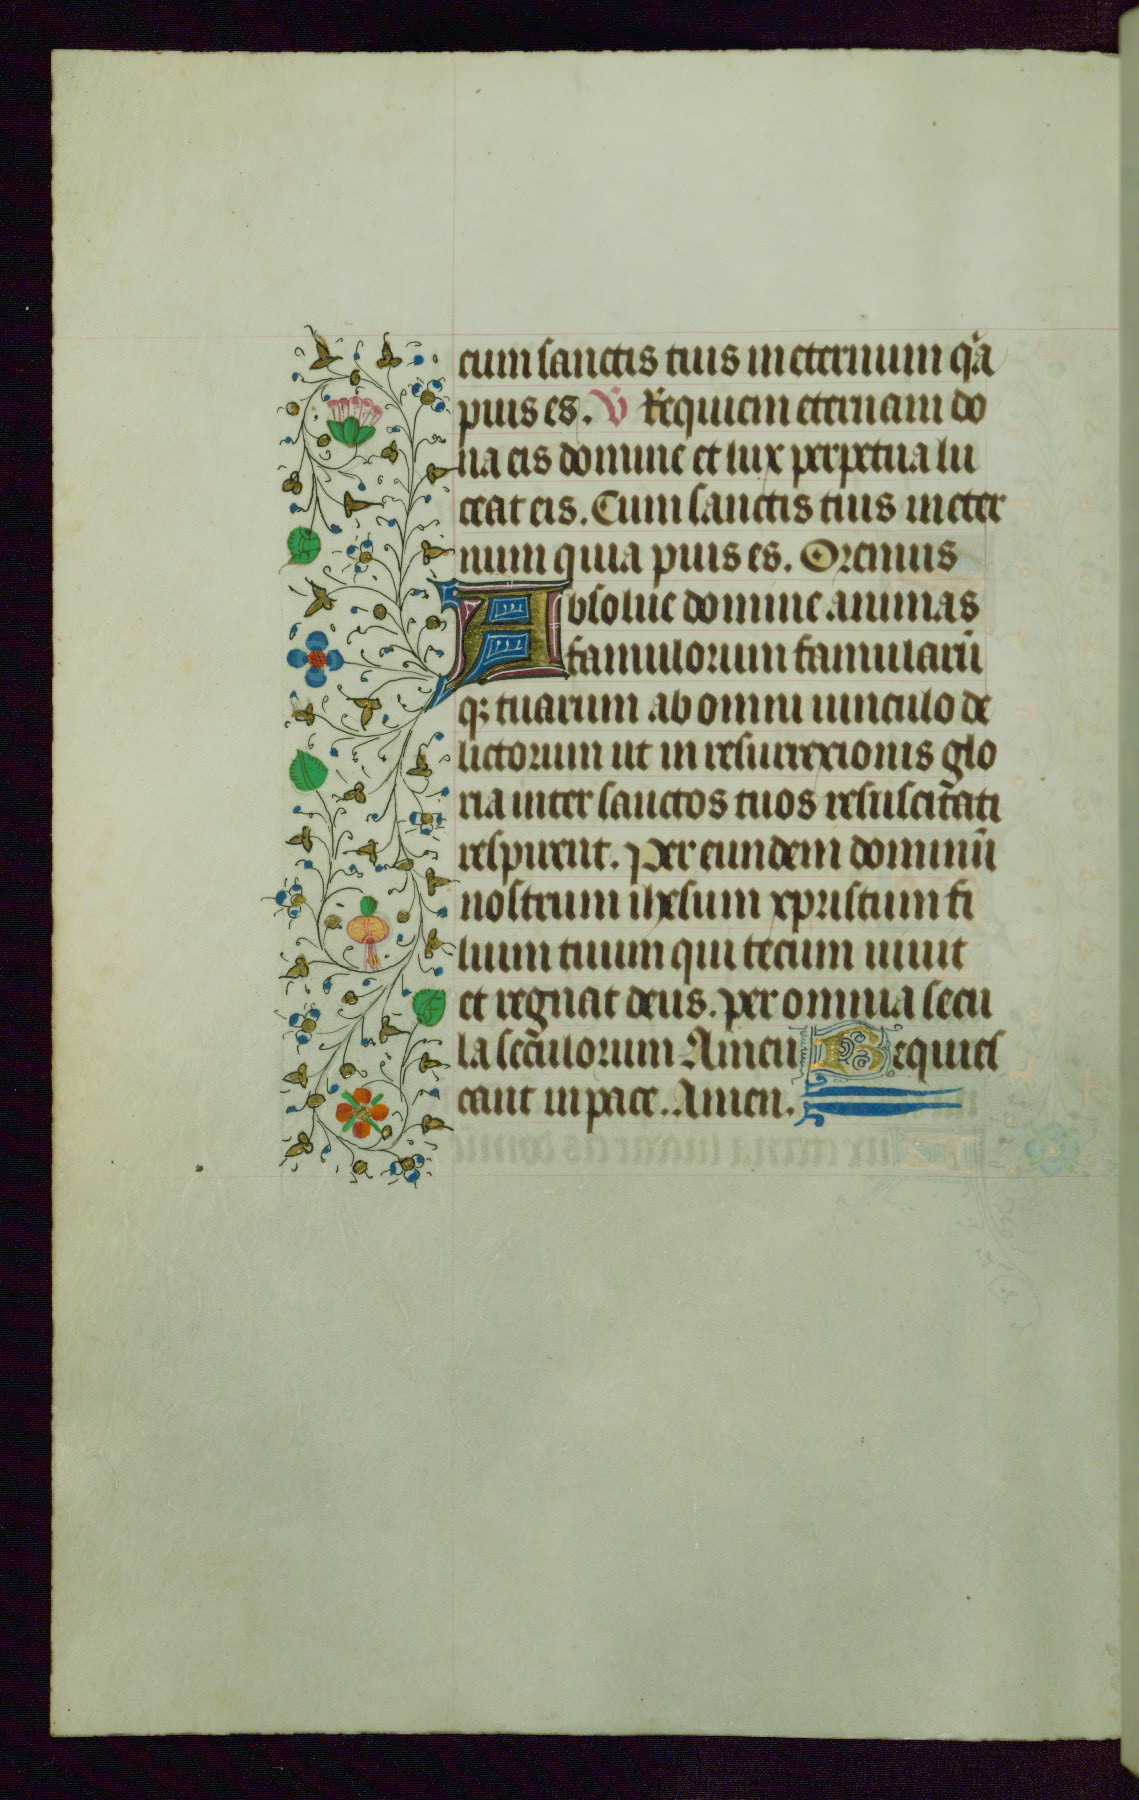 cum sanctis tuis in eternum q̃a
pius es. V̄ Requiem eternam do
na eis domine et lux perpetua lu
ceat eis. Cum sanctis tuis in eter
num quia pius es. Oremus
Absolue domine animas
famulorum famularũ
qꝫ tuarum ab omni uinculo de
lictorum ut in resurrexionis glo
ria inter sanctos tuos resuscitati
respirent. Per eundem dominũ
nostrum ihesum xpristum fi
lium tuum qui tecum uiuit
et regnat deus. per omnia secu
la seculorum Amen Requies
cant in pace. Amen.